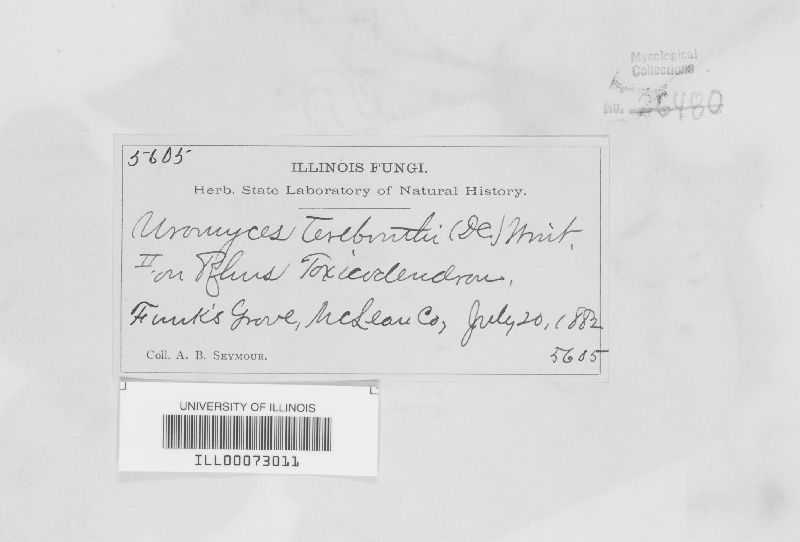 Mycological
Collections
No. 26480
5605
ILLINOIS FUNGI.
Herb. State Laboratory of Natural History.
Uromyces Terebinthi (DC.) Wint.
II on Rhus Toxicodendron.
Funk's Grove, McLean Co, July 20, 1882
Coll. A. B. SEYMOUR.
5605
UNIVERSITY OF ILLINOIS
ILL00073011